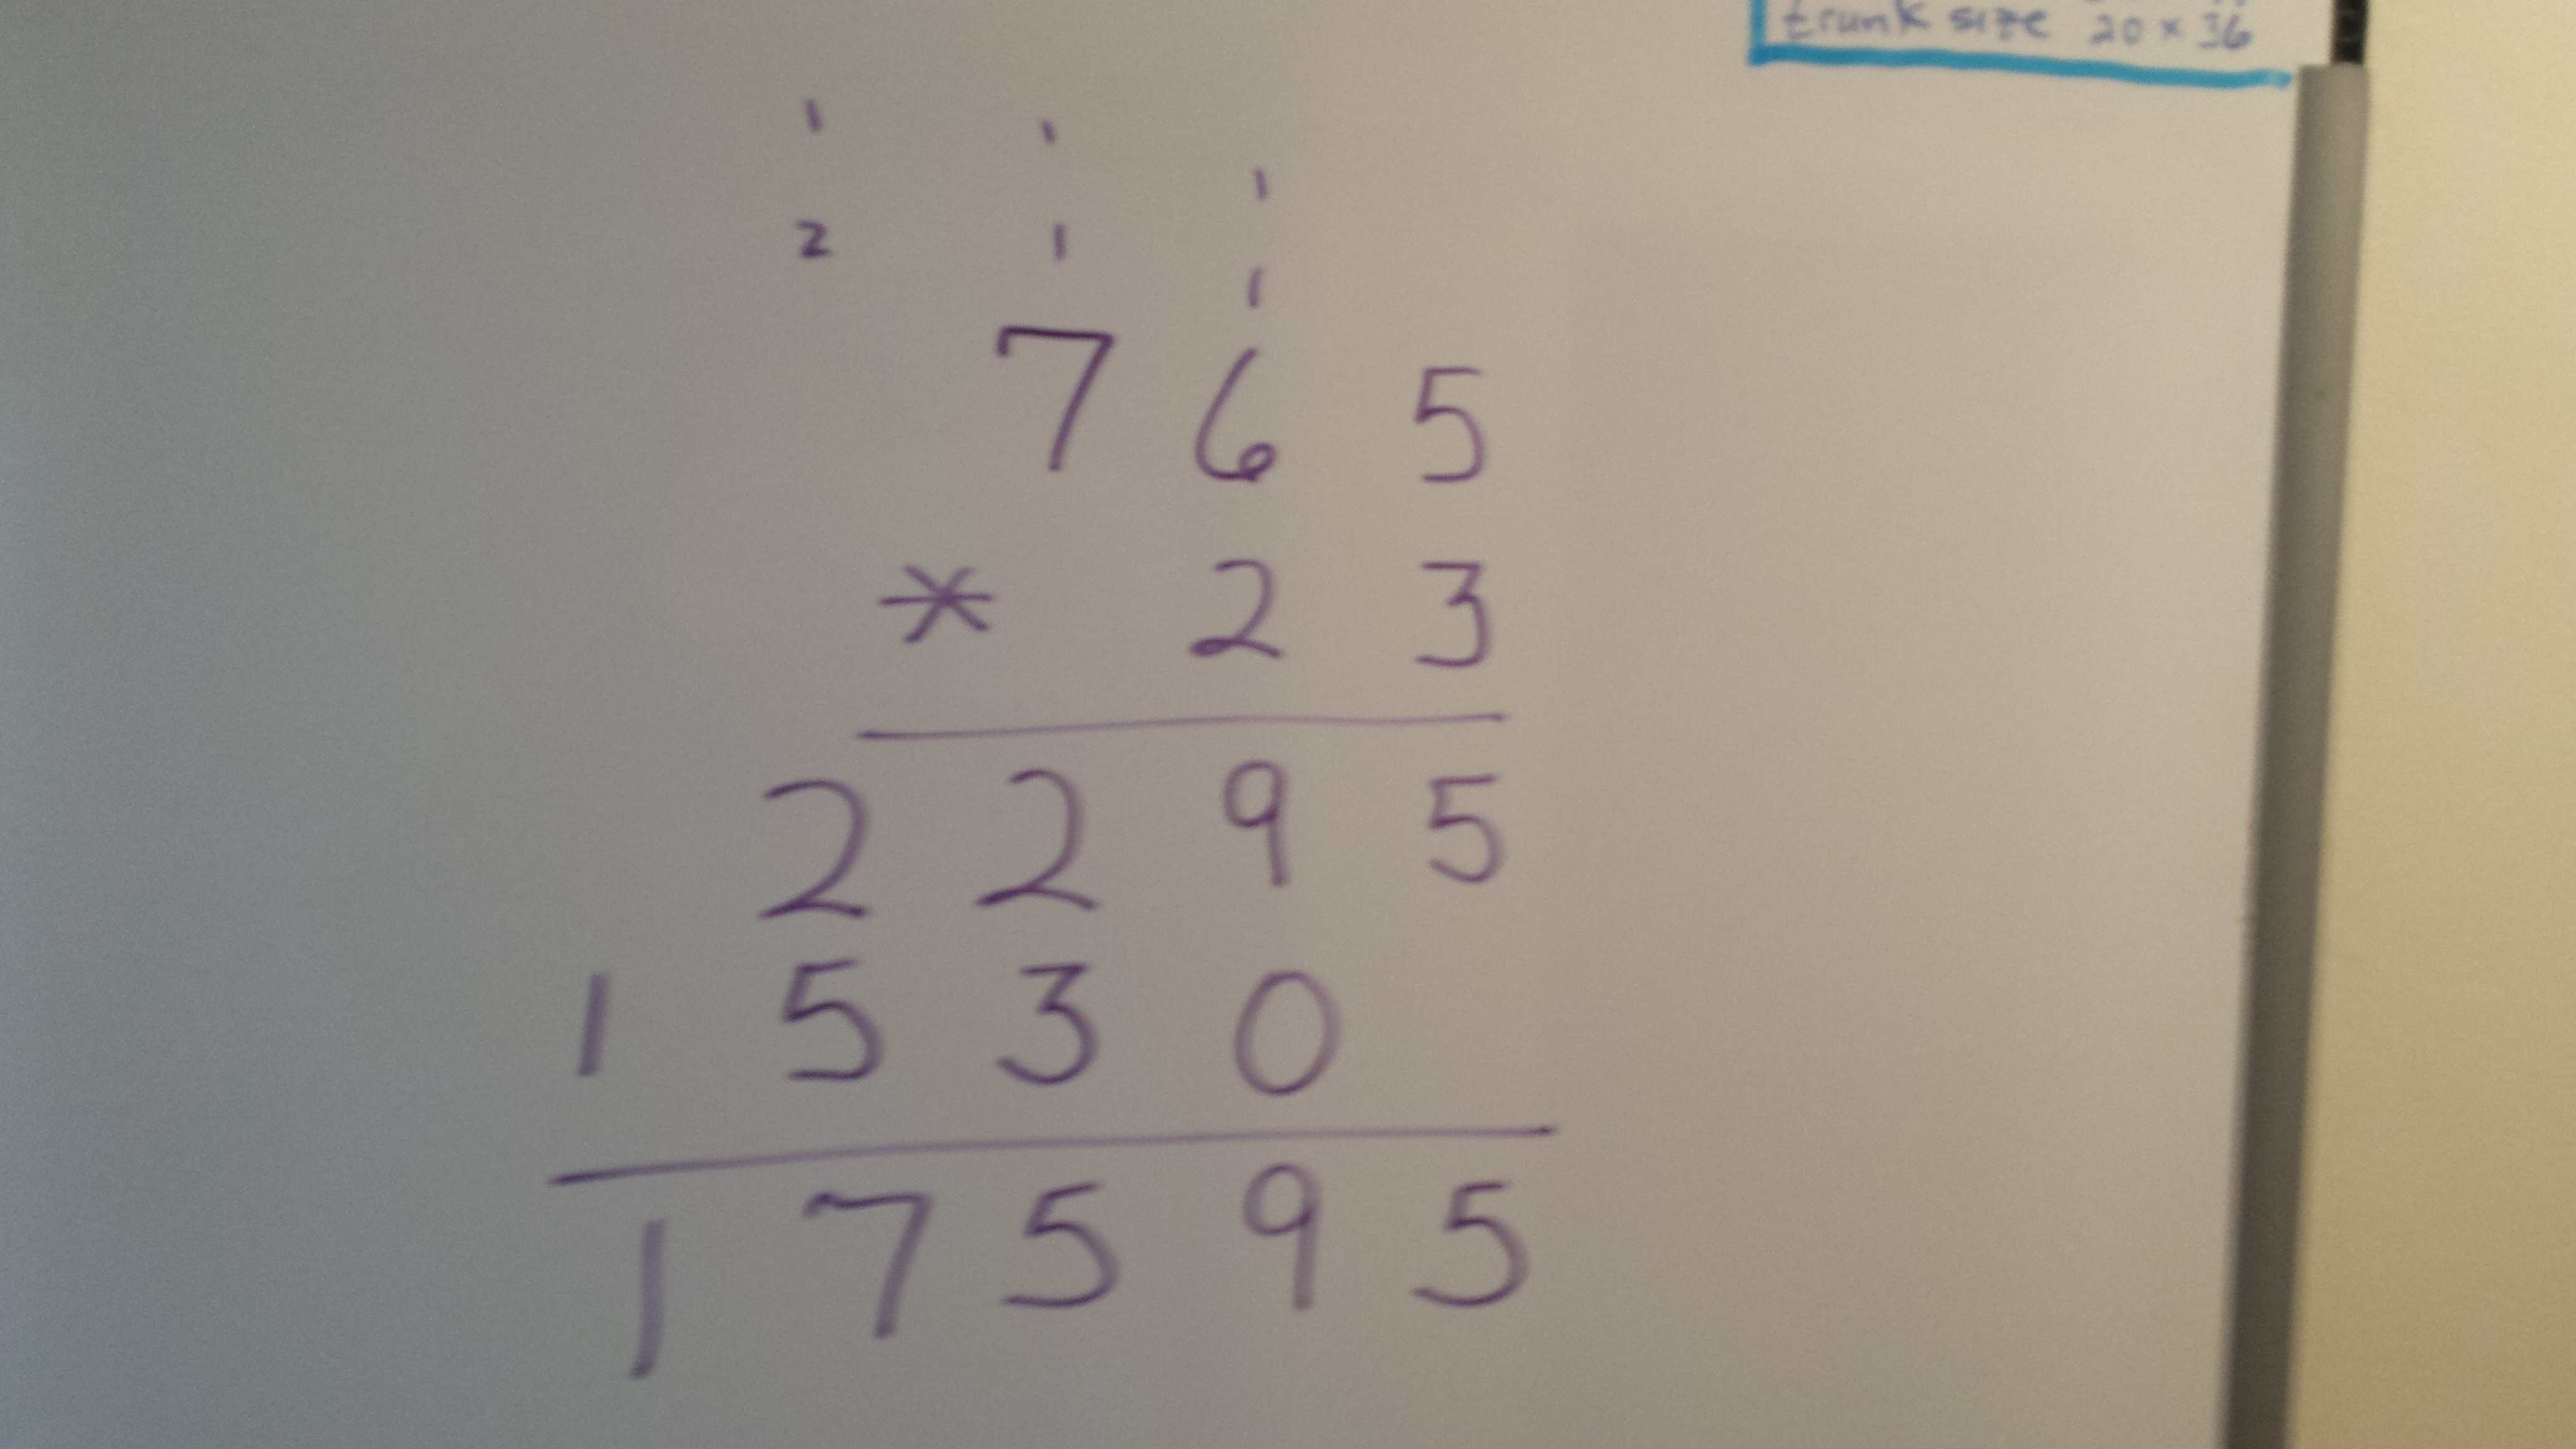 trunk size 20 x 36
1 1
1
2 1
1
7 6 5
* 2 3
2 2 9 5
1 5 3 0
1 7 5 9 5